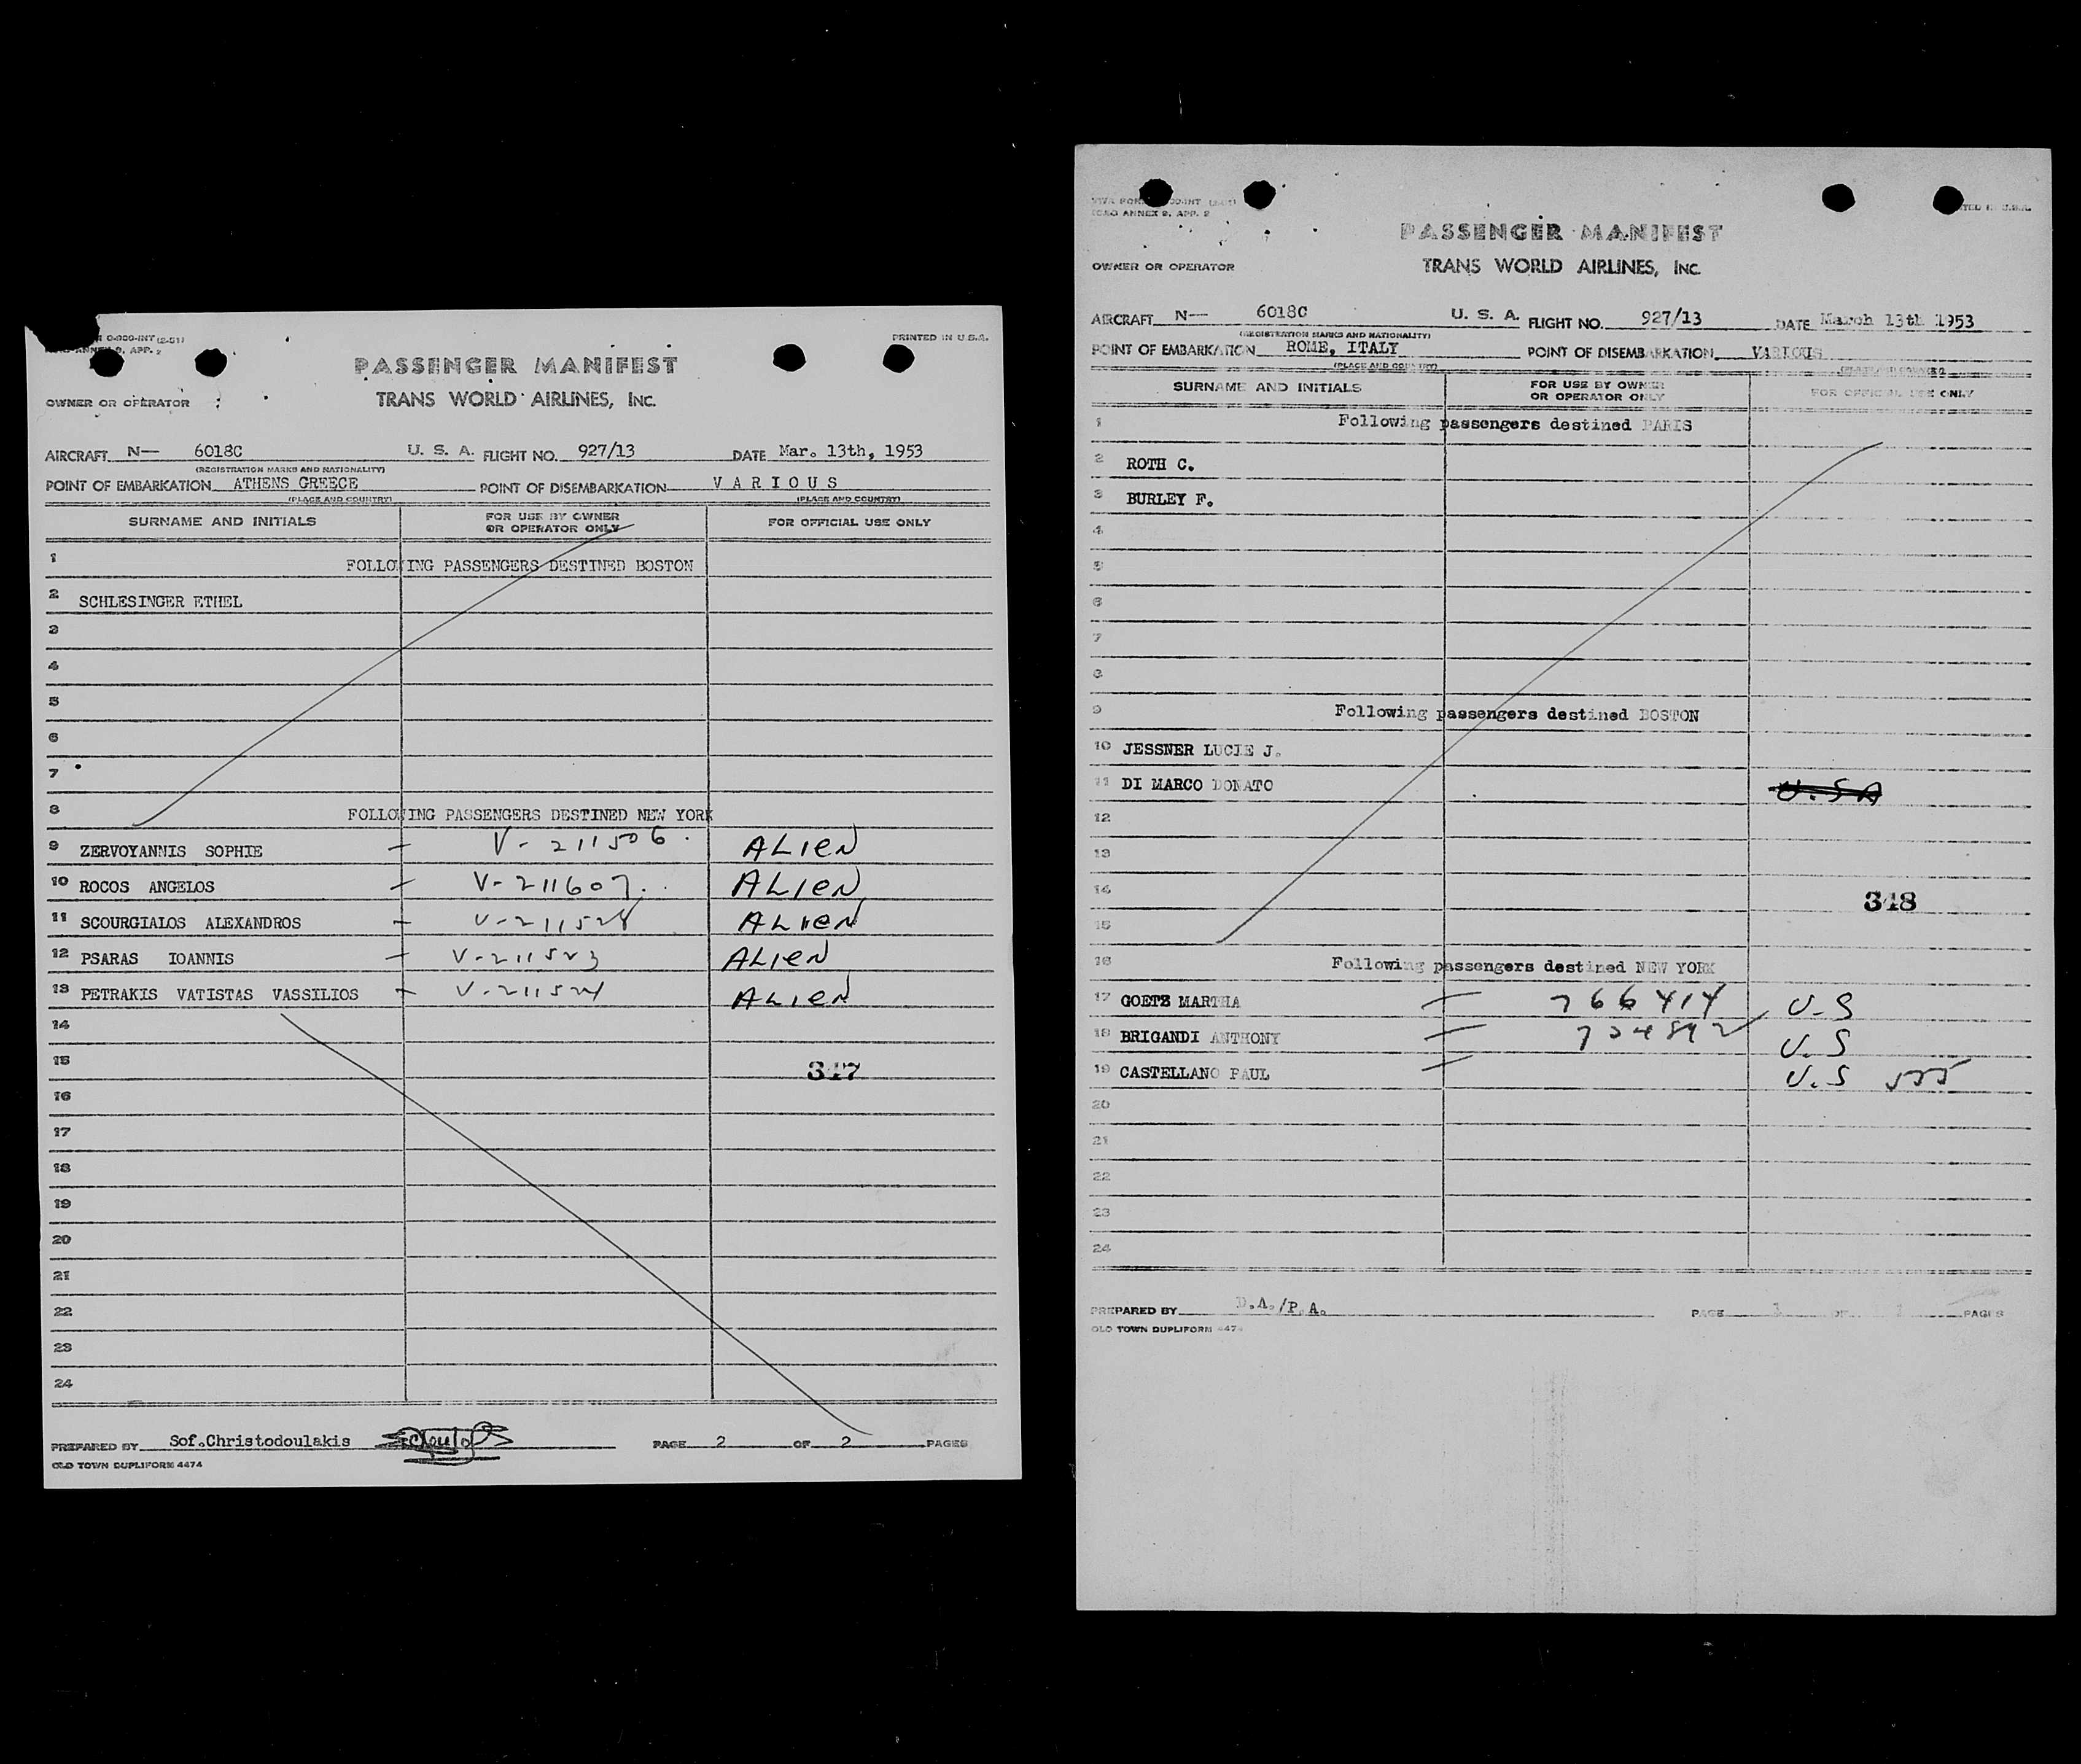 0-300-INT (2-51)
ICAO ANNEX 9, APP. 2
PRINTED IN U.S.A.
PASSENGER MANIFEST
OWNER OR OPERATOR
TRANS WORLD AIRLINES, INC.
AIRCRAFT N— 6018C U. S. A. FLIGHT NO. 927/13 DATE Mar. 13th, 1953
(REGISTRATION MARKS AND NATIONALITY)
POINT OF EMBARKATION ATHENS GREECE POINT OF DISEMBARKATION V A R I O U S
(PLACE AND COUNTRY) (PLACE AND COUNTRY)
SURNAME AND INITIALS FOR USE BY OWNER OR OPERATOR ONLY FOR OFFICIAL USE ONLY
1 FOLLOWING PASSENGERS DESTINED BOSTON
2 SCHLESINGER ETHEL
3
4
5
6
7
8 FOLLOWING PASSENGERS DESTINED NEW YORK
9 ZERVOYANNIS SOPHIE — V-211506 ALIEN
10 ROCOS ANGELOS — V-211607 ALIEN
11 SCOURGIALOS ALEXANDROS — V-211528 ALIEN
12 PSARAS IOANNIS — V-211523 ALIEN
13 PETRAKIS VATISTAS VASSILIOS — V-211524 ALIEN
14
15 347
16
17
18
19
20
21
22
23
24
PREPARED BY Sof.Christodoulakis PAGE 2 OF 2 PAGES
OLD TOWN DUPLIFORM 4474
ICAO ANNEX 9, APP. 2
PASSENGER MANIFEST
OWNER OR OPERATOR
TRANS WORLD AIRLINES, INC.
AIRCRAFT N— 6018C U. S. A. FLIGHT NO. 927/13 DATE March 13th 1953
(REGISTRATION MARKS AND NATIONALITY)
POINT OF EMBARKATION ROME, ITALY POINT OF DISEMBARKATION VARIOUS
(PLACE AND COUNTRY)
SURNAME AND INITIALS FOR USE BY OWNER OR OPERATOR ONLY FOR OFFICIAL USE ONLY
1 Following passengers destined PARIS
2 ROTH C.
3 BURLEY F.
4
5
6
7
8
9 Following passengers destined BOSTON
10 JESSNER LUCIE J.
11 DI MARCO DONATO U.S.A
12
13
14 348
15
16 Following passengers destined NEW YORK
17 GOETZ MARTHA — 766414 U.S
18 BRIGANDI ANTHONY — 724892 U.S
19 CASTELLANO PAUL — U.S
20
21
22
23
24
PREPARED BY D.A./P.A. PAGE OF PAGES
OLD TOWN DUPLIFORM 4474